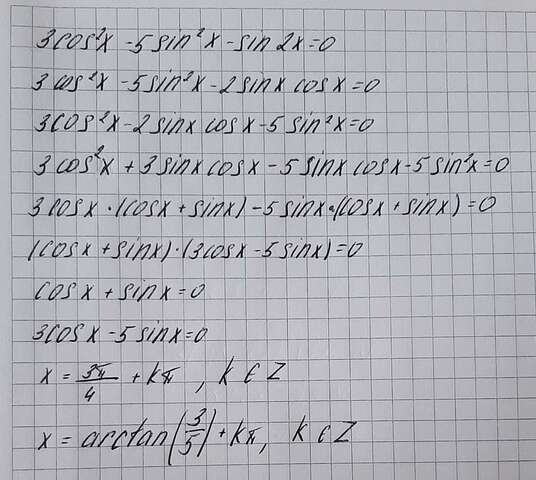 3cos²x - 5sin²x - sin 2x = 0
3cos²x - 5sin²x - 2sinx cosx = 0
3cos²x - 2sinx cosx - 5sin²x = 0
3cos²x + 3sinx cosx - 5sinx cosx - 5sin²x = 0
3cosx · (cosx + sinx) - 5sinx · (cosx + sinx) = 0
(cosx + sinx) · (3cosx - 5sinx) = 0
cosx + sinx = 0
3cosx - 5sinx = 0
x = 3π/4 + kπ, k ∈ Z
x = arctan(3/5) + kπ, k ∈ Z